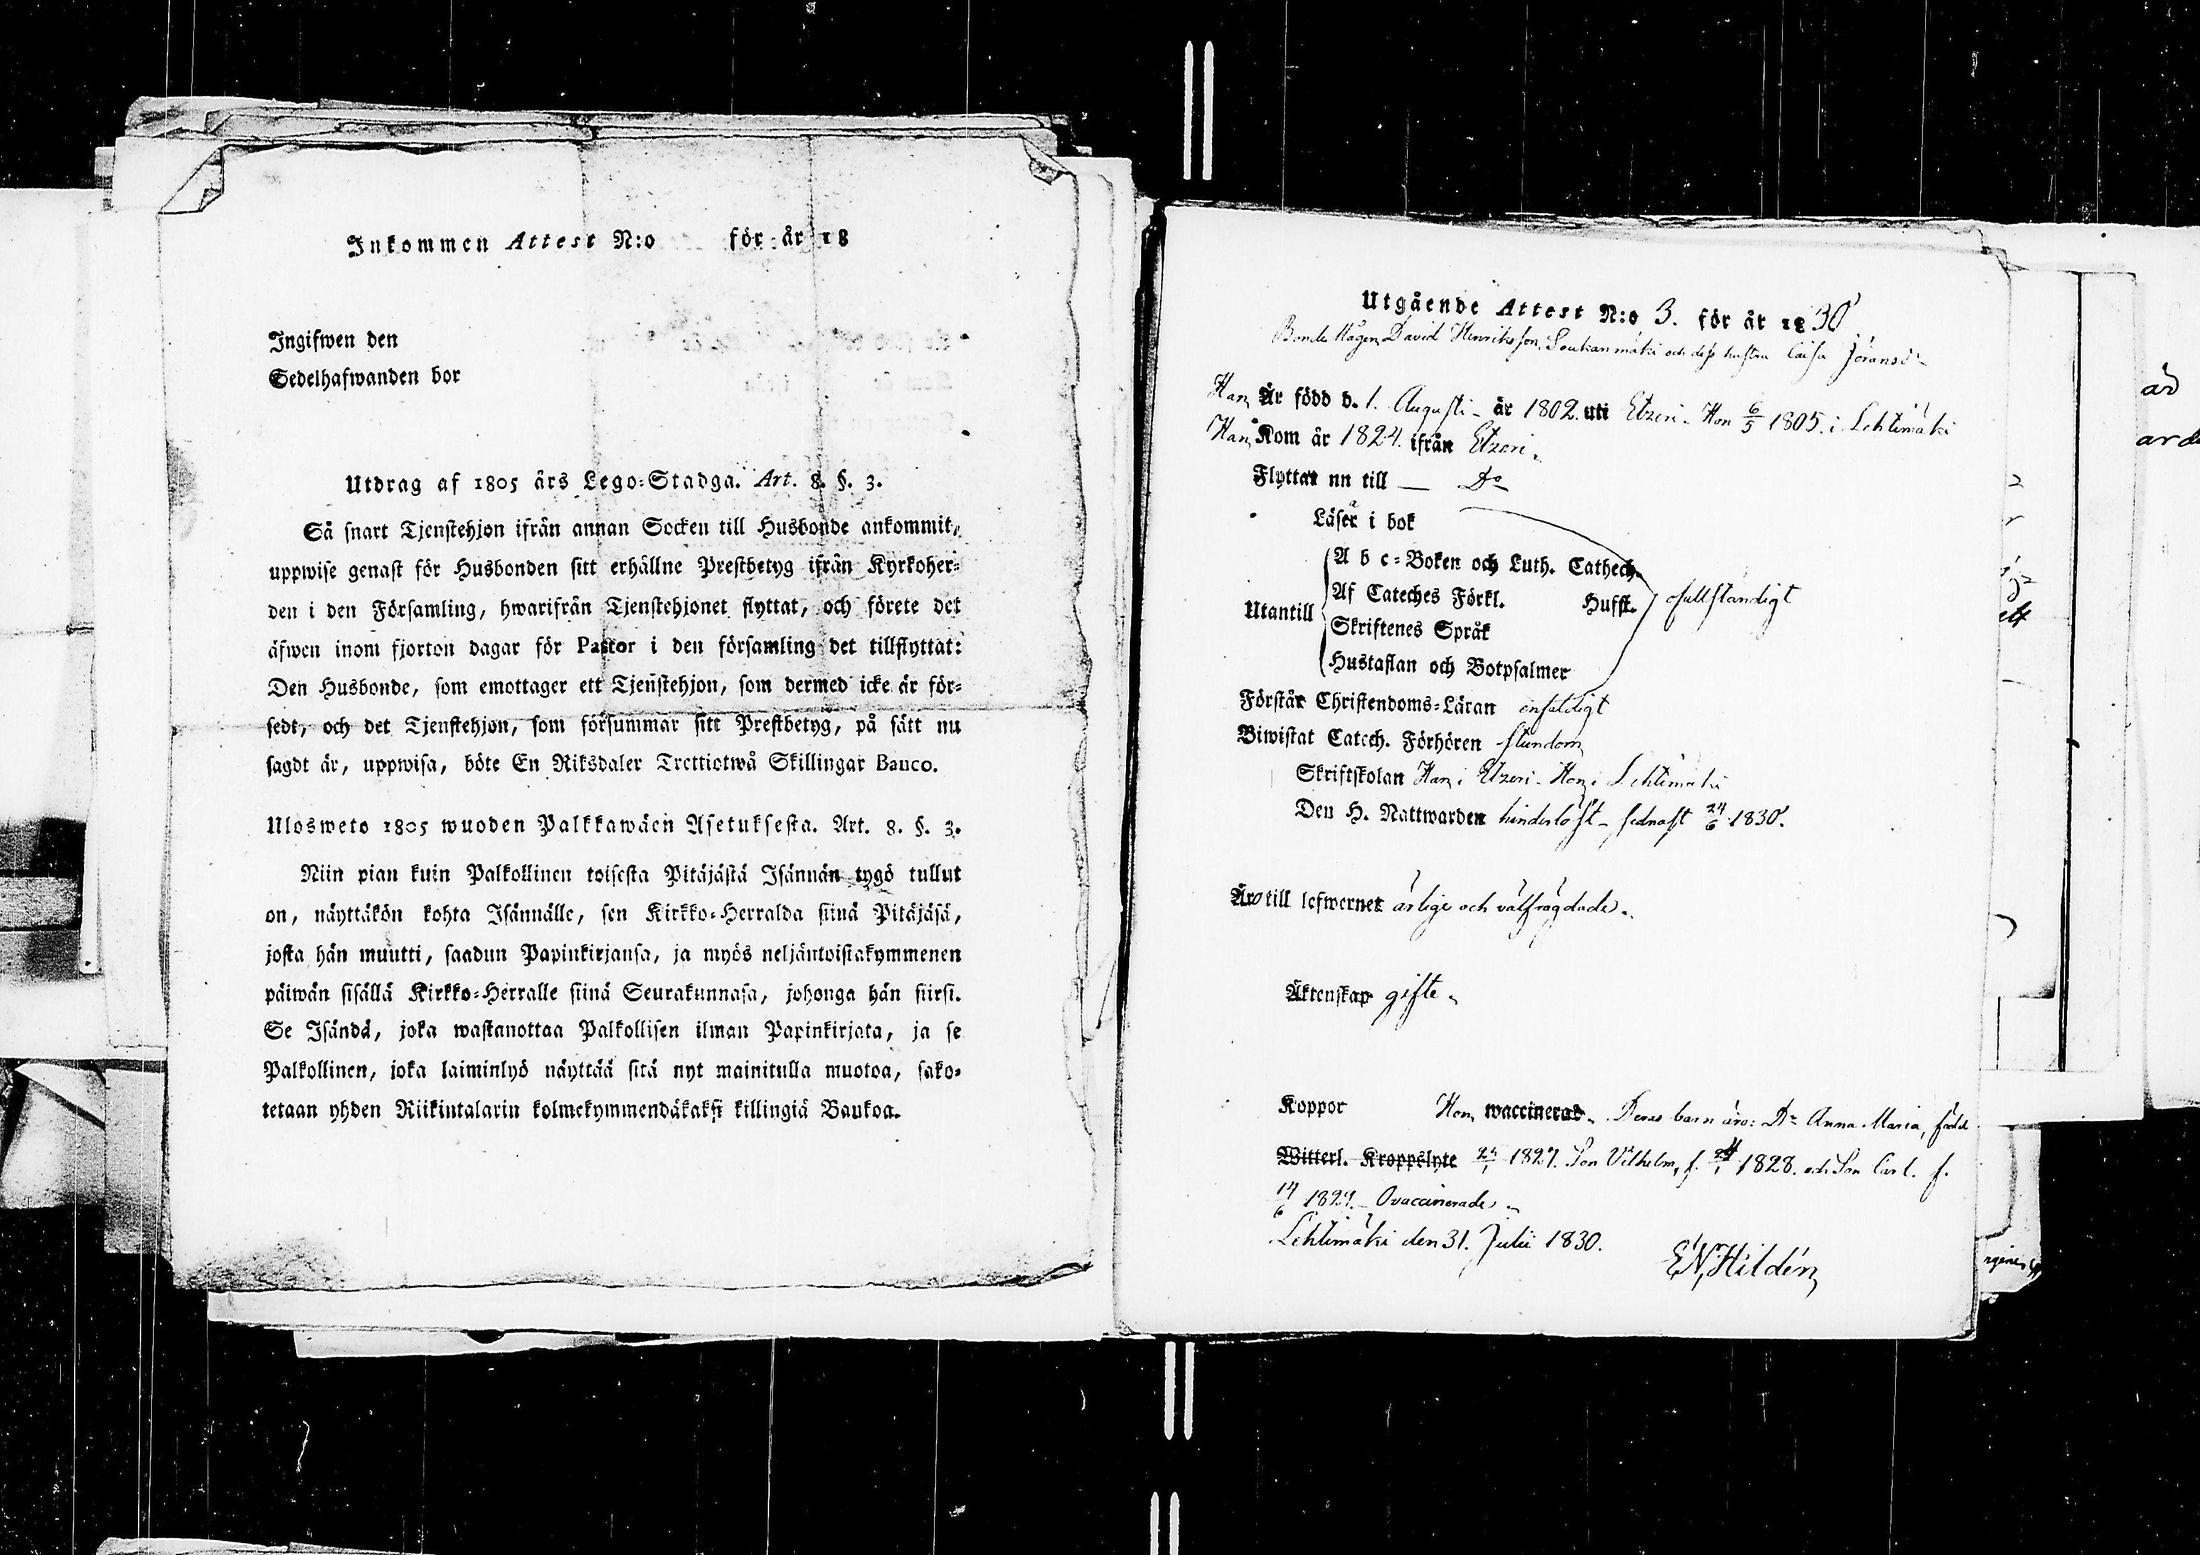 Inkommen Attest N:o för år 18
Ingifwen den
Sedelhafwanden bor
Utdrag af 1805 års Lego-Stadga. Art. 8. §. 3.
Så snart Tjenstehjon ifrån annan Socken till Husbonde ankommit,
uppwise genast för Husbonden sitt erhållne Prestbetyg ifrån Kyrkoher-
den i den Församling, hwarifrån Tjenstehjonet flyttat, och förete det
äfwen inom fjorton dagar för Pastor i den församling det tillflyttat:
Den Husbonde, som emottager ett Tjenstehjon, som dermed icke är för-
sedt, och det Tjenstehjon, som försummar sitt Prestbetyg, på sätt nu
sagdt är, uppwisa, böte En Riksdaler Trettiotwå Skillingar Banco.
Ulosweto 1805 wuoden Palkkawäen Asetuksesta. Art. 8. §. 3.
Niin pian kuin Palkollinen toisesta Pitäjästä Isännän tygö tullut
on, näyttäkön kohta Isännälle, sen Kirkko-Herralda siinä Pitäjäsä,
josta hän muutti, saadun Papinkirjansa, ja myös neljäntoistakymmenen
päiwän sisällä Kirkko-Herralle siinä Seurakunnasa, johonga hän siirsi.
Se Isändä, joka wastanottaa Palkollisen ilman Papinkirjata, ja se
Palkollinen, joka laiminlyö näyttää sitä nyt mainitulla muotoa, sako-
tetaan yhden Riikintalarin kolmekymmendäkaksi killingiä Baukoa.
Utgående Attest N:o 3. för år 1830
Bonde Mågen David Henriksson Soukanmäki och dess hustru Caisa Jöransdr
Han Är född d. 1. Augusti år 1802. uti Etzeri. Hon 6/5 1805. i Lehtimäki
Han Kom år 1824. ifrån Etzeri.
Flyttar nu till — Do
Läser i bok
A b c-Boken och Luth. Cathech.
Af Cateches Förkl. Hufft. fullständigt
Utantill
Skriftenes Språk
Hustaflan och Botpsalmer
Förstår Christendoms-Läran enfaldigt
Biwistat Catech. Förhören stundom
Skriftskolan Han i Etzeri. Hon i Lehtimäki
Den H. Nattwarden hinderlöst – sednast 24/6 1830.
Äro till lefwernet ärlige och välfrägdade.
Äktenskap gifte.
Koppor Hon waccinerad. Deras barn äro: Dr Anna Maria, född
Witterl. Kroppslyte 1827. Son Vilhelm, f. 1828. och Son Carl. f.
14/6 1829. – Ovaccinerade.
Lehtimäki den 31. Julii 1830.
E N Hildén